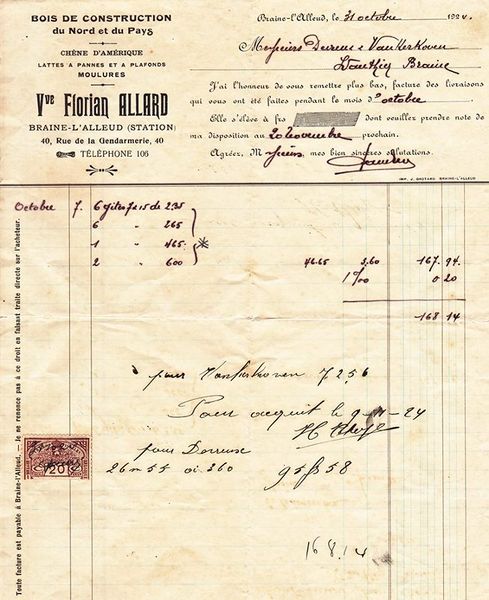 BOIS DE CONSTRUCTION
du Nord et du Pays
CHÊNE D'AMÉRIQUE
LATTES A PANNES ET A PLAFONDS
MOULURES
Vve Florian ALLARD
BRAINE-L'ALLEUD (STATION)
40, Rue de la Gendarmerie, 40
TÉLÉPHONE 106
Braine-l'Alleud, le 31 octobre 1924.
Messieurs & Vankerkoven
Braine
J'ai l'honneur de vous remettre plus bas, facture des livraisons
qui vous ont été faites pendant le mois d'octobre
Elle s'élève à frs dont veuillez prendre note de
ma disposition au 20 Novembre prochain.
Agréez, Messieurs, mes bien sincères salutations.
IMP. J. BRAINE-L'ALLEUD
Octobre 7. 6 gîtes 7x15 de 2.35
6 " 265
1 " 465
2 " 600 46.65 3.60 167.94
1 % 0 20
168 14
pour Vankerkoven 72.56
Pour acquit le 9-11-24
pour
26 m 55 à 3.60 95 58
168.14
20
Toute facture est payable à Braine-l'Alleud. — Je ne renonce pas à ce droit en faisant traite directe sur l'acheteur.